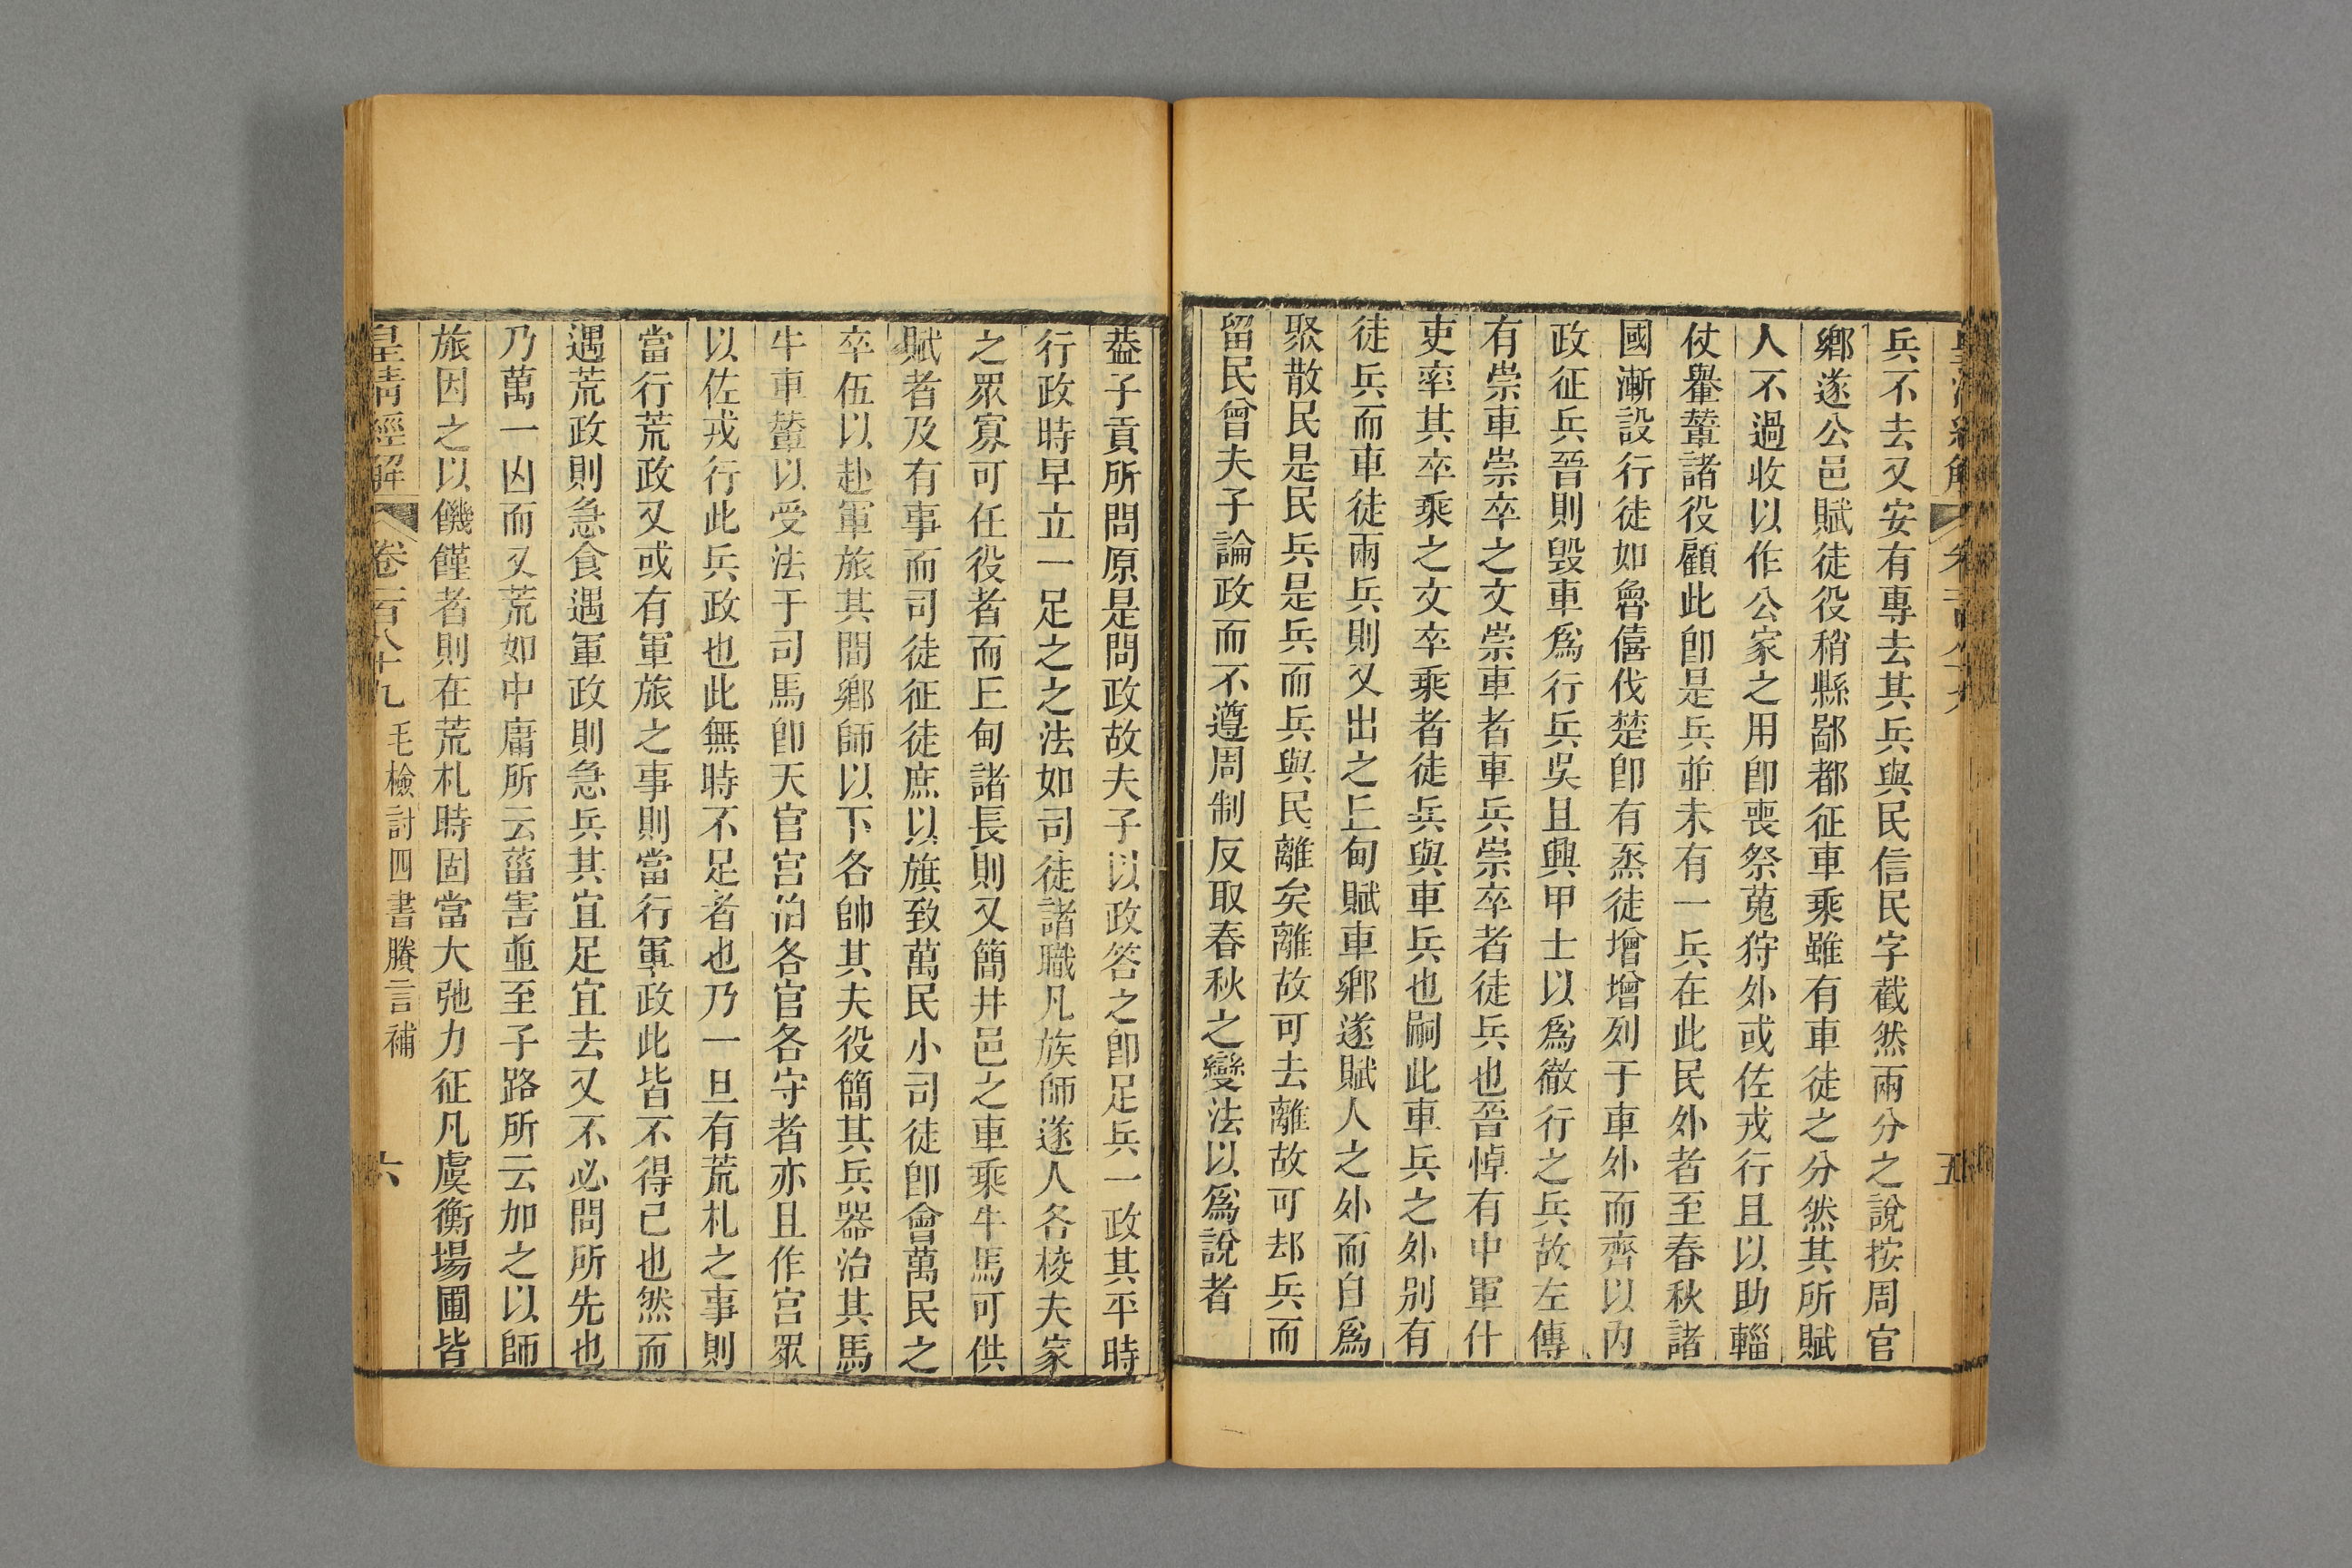 兵不去又安有專去其兵與民信民字截然兩分之說按周官
鄉遂公邑賦徒役稍縣鄙都征車乘雖有車徒之分然其所賦
人不過收以作公家之用卽喪祭蒐狩外或佐戎行且以助輜
仗轝輦諸役顧此卽是兵並未有一兵在此民外者至春秋諸
國漸設行徒如魯僖伐楚卽有烝徒增增列于車外而齊以內
政征兵晉則毀車爲行兵吳且興甲士以爲徹行之兵故左傳
有崇車崇卒之文崇車者車兵崇卒者徒兵也晉悼有中軍什
吏率其卒乘之文卒乘者徒兵與車兵也嗣此車兵之外别有
徒兵而車徒兩兵則又出之丘甸賦車鄉遂賦人之外而自爲
聚散民是民兵是兵而兵與民離矣離故可去離故可却兵而
留民曾夫子論政而不遵周制反取春秋之變法以爲說者
葢子貢所問原是問政故夫子以政答之卽足兵一政其平時
行政時早立一足之之法如司徒諸職凡族師遂人各稜夫家
之眾寡可任役者而丘甸諸長則又簡井邑之車乘牛馬可供
賦者及有事而司徒征徒庶以旗致萬民小司徒卽會萬民之
卒伍以赴軍旅其間鄉師以下各帥其夫役簡其兵器治其馬
牛車輦以受法于司馬卽天官宮伯各官各守者亦且作宮眾
以佐戎行此兵政也此無時不足者也乃一旦有荒札之事則
當行荒政又或有軍旅之事則當行軍政此皆不得已也然而
遇荒政則急食遇軍政則急兵其宜足宜去又不必問所先也
乃萬一凶而又荒如中庸所云菑害並至子路所云加之以師
旅因之以饑饉者則在荒札時固當大弛力征凡虞衡場圃皆
皇清經解 卷一百八十九 毛檢討四書賸言補 六